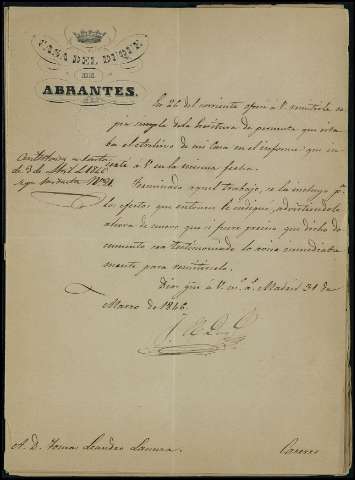 CASA DEL DUQUE
DE
ABRANTES.
En 26 del corriente ofrecí a V. remitirle copia
simple de la Escritura de permuta que
ba el archivo de mi Casa en el informe que
a V. en la misma fecha.
Contestada en carta
de 3 de Abril de 1846
Terminado aquel trabajo, se la incluyo
los efectos que entonces le indiqué, advirtiendole
ahora de nuevo que si fuere preciso que dicho documento
sea testimoniado lo avise inmediatamente
para remitirselo.
Dios gue. a V. m. a. Madrid 31 de
Marzo de 1846.
A. D. Tomas Leandro
Caceres